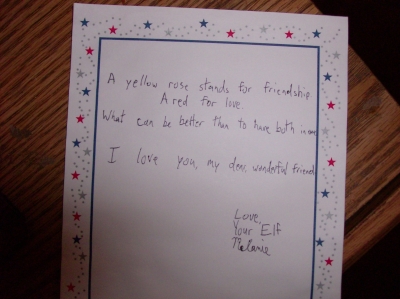 A yellow rose stands for friendship.
A red for love.
What can be better than to have both in one
I love you, my dear, wonderful friend
Love,
Your Elf
Melanie